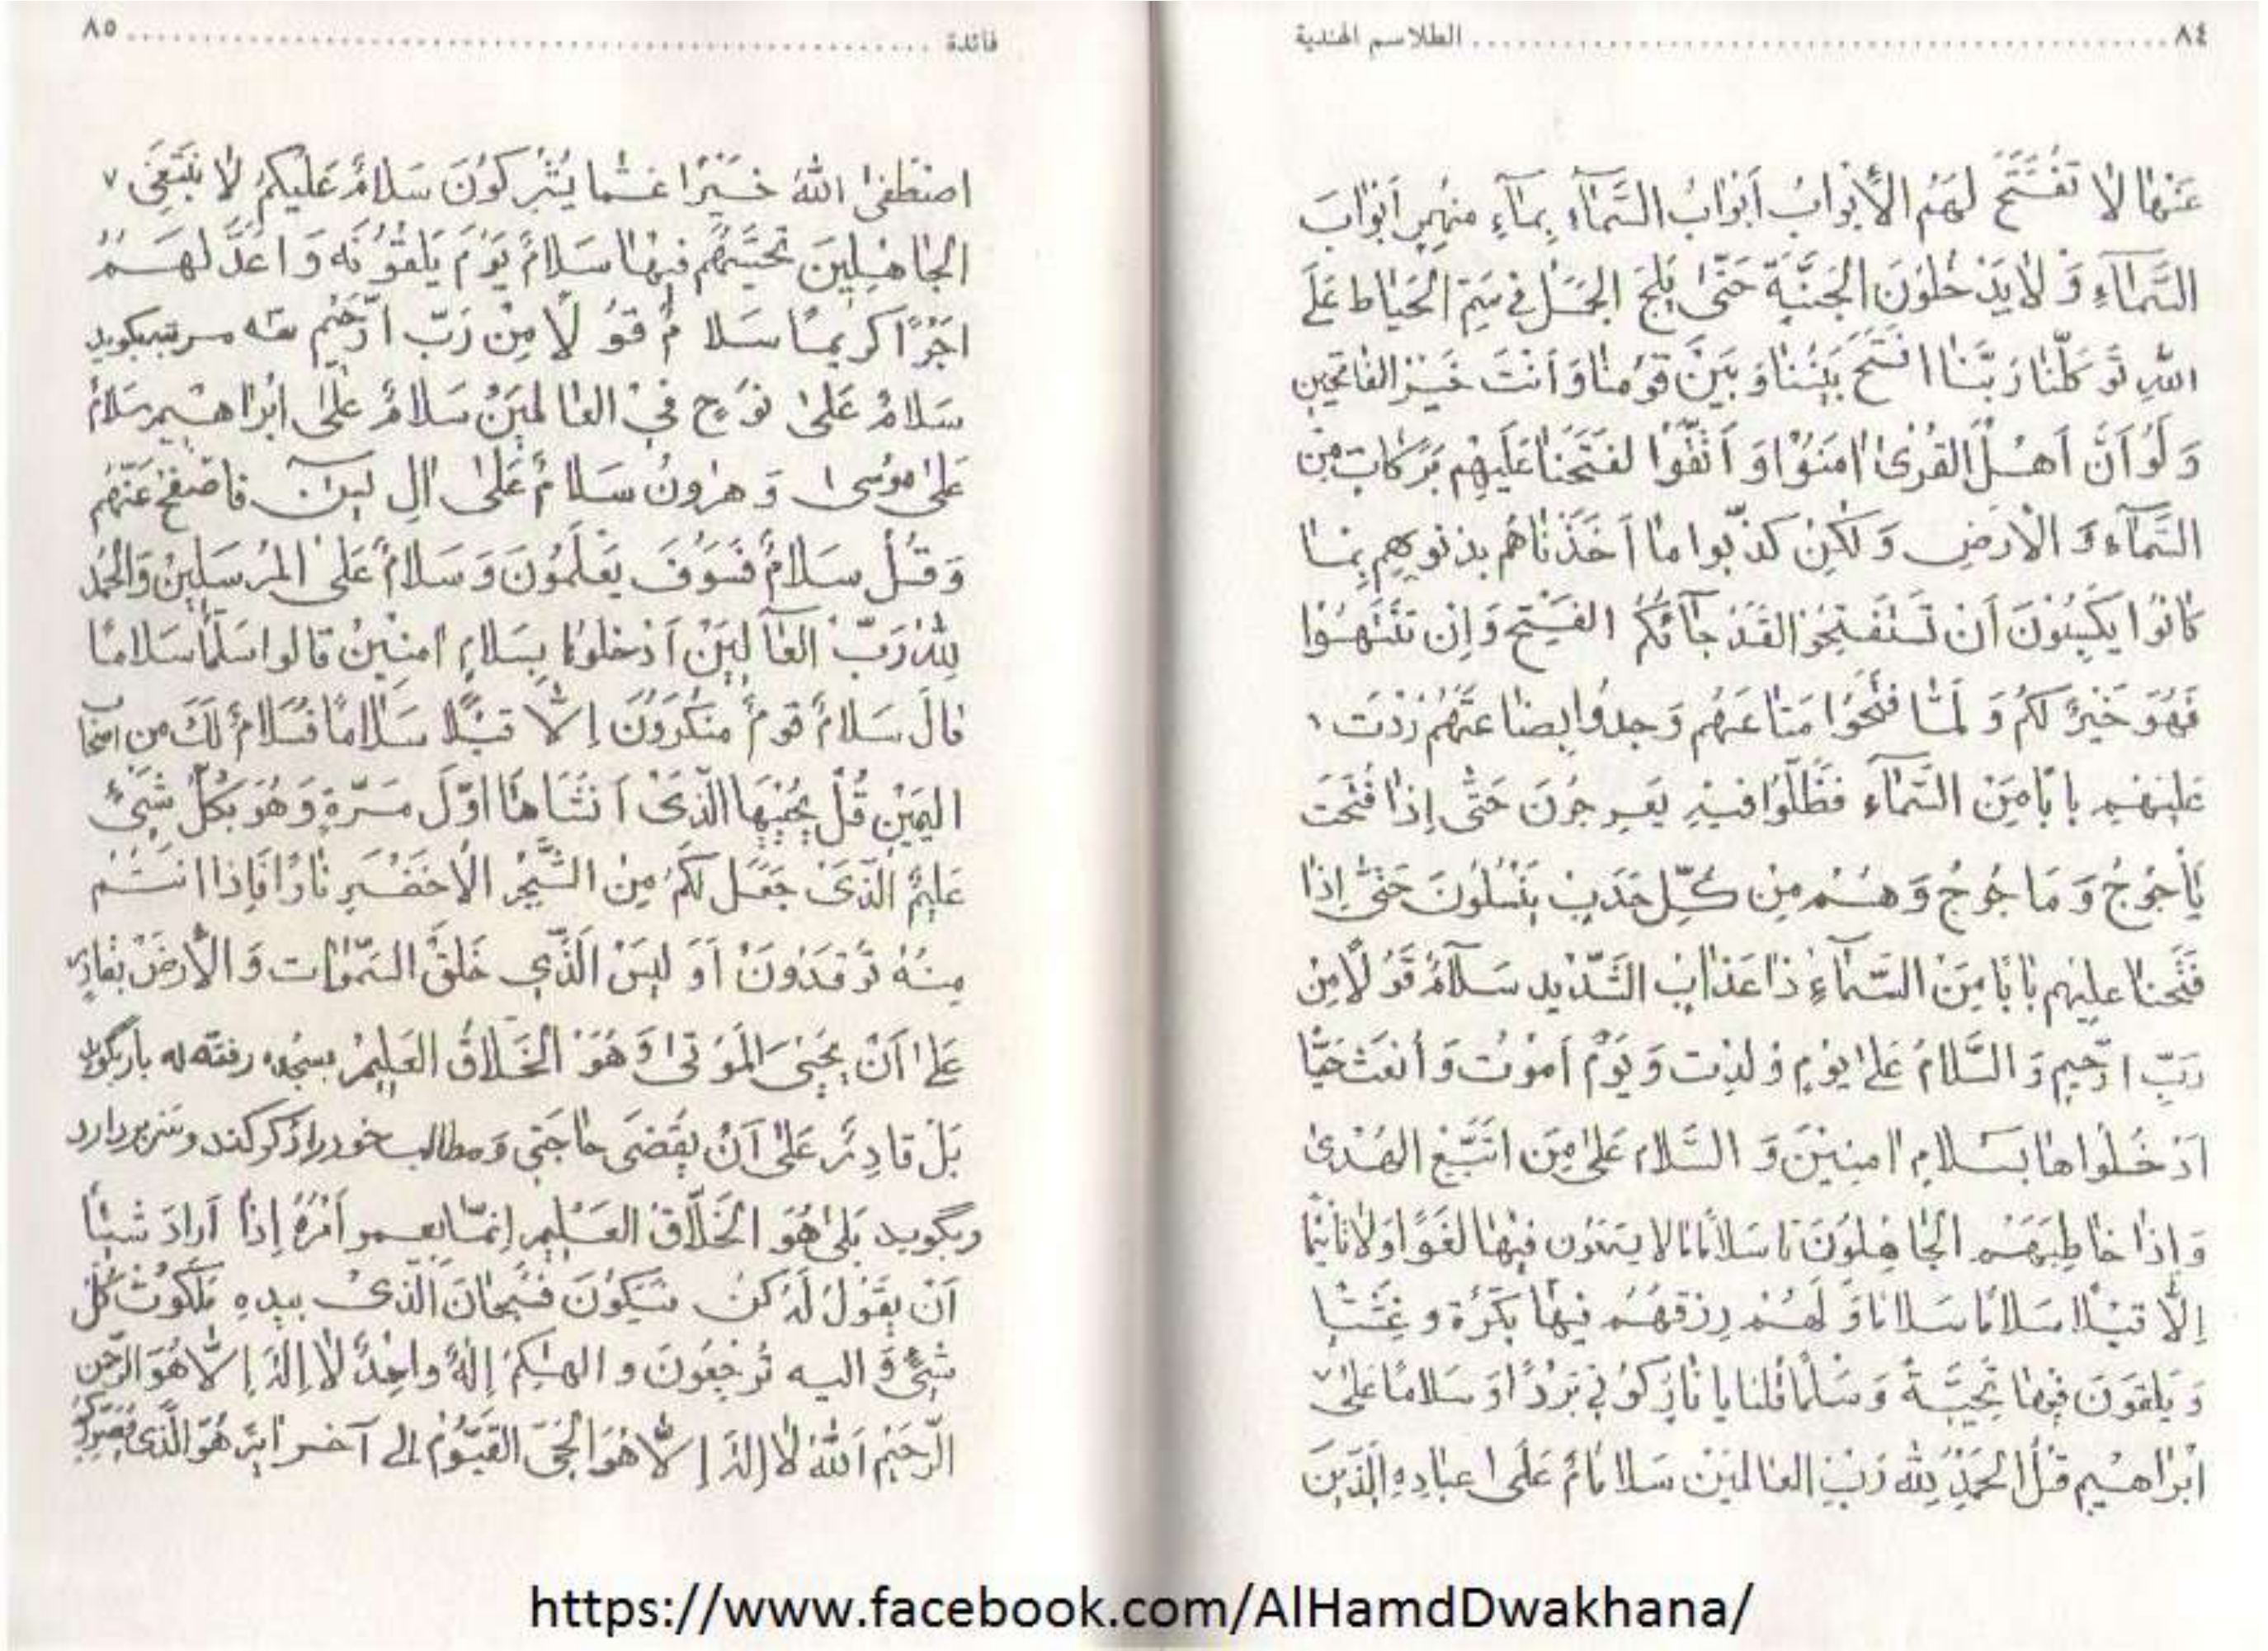 ٨٤ الطلاسم الهندية
عَنْهٰا لاٰ تُفَتَّحُ لَهُمْ الأَبْوابُ أَبْوابُ السَّمٰآءِ بِمٰآءٍ مُنْهَمِرٍ أَبْوابَ
السَّمٰآءِ وَ لاٰ يَدْخُلُونَ الْجَنَّةَ حَتّىٰ يَلِجَ الْجَمَلُ فِي سَمِّ الْخِيٰاطِ عَلَى
اللهِ تَوَكَّلْنٰا رَبَّنٰا افْتَحْ بَيْنَنٰا وَ بَيْنَ قَوْمِنٰا وَ أَنْتَ خَيْرُ الفٰاتِحِينَ
وَ لَوْ أَنَّ أَهْلَ الْقُرىٰ اٰمَنُوْا وَ اتَّقَوْا لَفَتَحْنٰا عَلَيْهِمْ بَرَكٰاتٍ مِن
السَّمٰآءِ وَ الْأَرْضِ وَ لٰكِنْ كَذَّبُوا مٰا أَخَذْنٰاهُمْ بِذُنُوبِهِمْ بِمٰا
كٰانُوا يَكْسِبُونَ أَن تَسْتَفْتِحُوا لَقَدْ جٰآئَكُمُ الفَتْحُ وَ إِن تَنْتَهُوْا
فَهُوَ خَيْرٌ لَكُمْ وَ لَمّٰا فَتَحُوا مَتٰاعَهُم وَجَدُوا بِضٰاعَتَهُمْ رُدَّت
عَلَيْهِم بٰابًا مِنَ السَّمٰآءِ فَظَلُّوا فِيهِ يَعْرِجُونَ حَتّىٰ إِذٰا فُتِحَت
يَأْجُوجُ وَ مَاجُوجُ وَ هُمْ مِن كُلِّ حَدَبٍ يَنْسِلُونَ حَتّىٰ إِذٰا
فَتَحْنٰا عَلَيْهِم بٰابًا مِنَ السَّمٰاءِ ذٰا عَذٰابٍ الشَّدِيدِ سَلاٰمٌ قَوْلًا مِن
رَبٍّ رَّحِيمٍ وَ السَّلاٰمُ عَلىٰ يَوْمِ وُلِدْت وَ يَوْمَ أَمُوْتُ وَ أُبْعَث حَيًّا
ادْخُلُوهٰا بِسَلاٰمٍ اٰمِنِينَ وَ السَّلاٰم عَلىٰ مَنِ اتَّبَعَ الهُدىٰ
وَ إِذٰا خٰاطَبَهُمْ الْجٰاهِلُونَ قٰا سَلاٰمًا لا فِيهٰا لَغْوًا وَلاٰ تَأْثِيمًا
إِلّا قيلًا سَلاٰمًا سَلاٰمًا وَ لَهُمْ رِزْقُهُمْ فِيهٰا بُكْرَةً و عَشِيًّا
وَ يَلْقَوْنَ فِيهٰا تَحِيَّةً وَ سَلٰمًا قُلنٰا يٰا نٰارُ كُونِي بَرْدًا وَ سَلاٰمًا عَلىٰ
ابْرٰاهِيمَ قُلْ الْحَمْدُ لِلّٰهِ رَبِّ العٰالمِينَ عَلىٰ عِبٰادِهِ الَّذِينَ
فائدة ٨٥
اصْطَفىٰ اللهُ خَيْرٌ عَمّا يُشْرِكُونَ سَلاٰمٌ عَلَيْكُمْ لاٰ نَبْتَغِي
الْجٰاهِلِينَ تَحِيَّتُهُمْ فِيهٰا سَلاٰمٌ يَوْمَ يَلْقَوْنَه وَ اعَدَّ لَهُمْ
اجْرًا كَرِيمًا سَلاٰمٌ قَوْلًا مِنْ رَبٍّ رَّحِيْمٍ سه مرتبه بكويد
سَلاٰمٌ عَلىٰ نُوْحٍ فِي الْعٰالَمِينَ سَلاٰمٌ عَلىٰ ابْرٰاهِيمَ سَلاٰمٌ
عَلىٰ مُوْسىٰ وَ هٰرُونَ سَلاٰمٌ عَلىٰ اٰلِ يٰسٓ فَاصْفَحْ عَنْهُمْ
وَ قُلْ سَلاٰمٌ فَسَوْفَ يَعْلَمُونَ وَ سَلاٰمٌ عَلىٰ الْمُرْسَلِينَ وَالْحَمْدُ
لِلّٰهِ رَبِّ الْعٰالَمِينَ اَدْخُلُوهٰا بِسَلاٰمٍ اٰمِنِينَ قٰالُوا سَلٰمًا سَلامًا
قٰالَ سَلاٰمٌ قَوْمٌ مُنْكَرُونَ إِلاّٰ قيلًا سَلاٰمًا فَسَلاٰمٌ لَكَ مِن أصحٰاب
اليَمينِ قُلْ يُحْيِيهَا الَّذِي أَنْشَأَهٰا اوَّلَ مَرَّةٍ وَ هُوَ بِكُلِّ شَيْءٍ
عَلِيمٌ الَّذِي جَعَلَ لَكُمْ مِنَ الشَّجَرِ الْأَخْضَرِ نٰارًا فَإِذٰا انْتُمْ
مِنْهُ تُوْقِدُونَ أَوَ لَيْسَ الَّذِي خَلَقَ السَّمٰوٰات وَ الْأَرْضَ بِقٰادِرٍ
عَلىٰ أَنْ يُحْيِيَ الْمَوْتىٰ وَ هُوَ الْخَلاّٰقُ العَلِيمُ بسجده رفته بار بگويد
بَلْ قٰادِرٌ عَلىٰ أَنْ يَقْضَى حٰاجَتِي وَ مطالب خود را ذكر كند و سر بردارد
و بگويد بَلىٰ هُوَ الْخَلاّقُ الْعَلِيمُ إِنَّمٰا أَمْرُهُ إِذٰا أَرٰادَ شَيْئًا
أَنْ يَقُولَ لَهُ كُنْ فَيَكُونَ فَسُبْحٰانَ الَّذِي بِيدِهِ مَلَكُوتُ كُلِّ
شَيْءٍ وَ اليه تُرْجَعُونَ و الهُكُمْ إِلٰهٌ وٰاحِدٌ لاٰ إِلٰهَ إِلاّٰ هُوَ الرَّحْمٰن
الرَّحِيمُ اَللهُ لاٰ إِلٰهَ إِلاّٰ هُوَ الْحَيُّ القَيُّومُ إلى آخر آية هُوَ الَّذِي يُصَوِّرُكُمْ
https://www.facebook.com/AlHamdDwakhana/